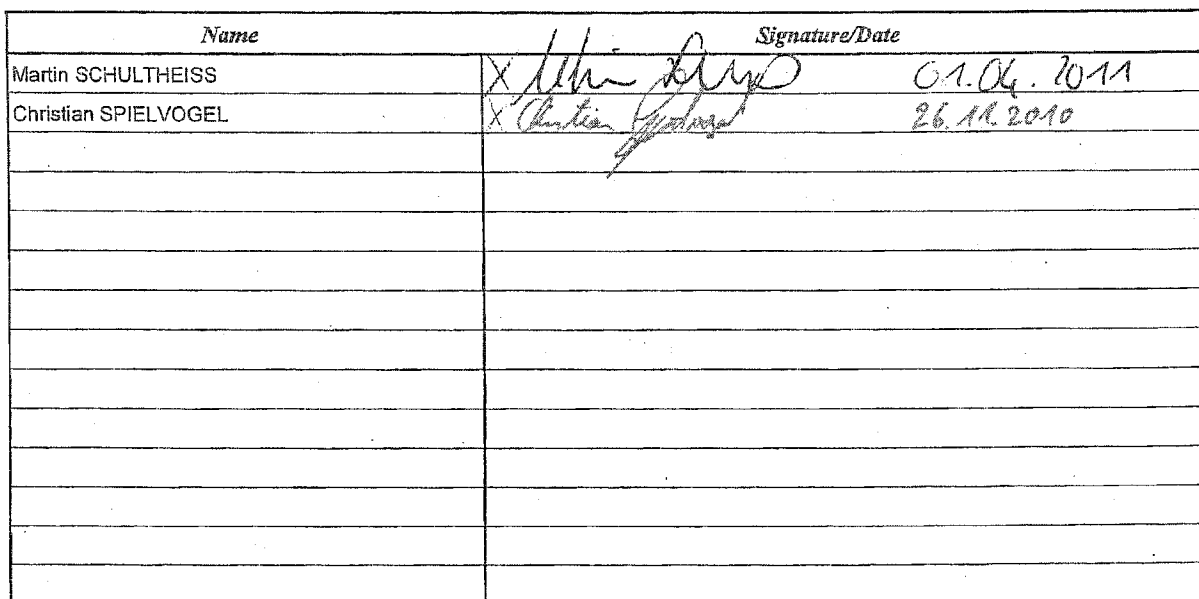 Name Signature/Date
Martin SCHULTHEISS X 01.04.2011
Christian SPIELVOGEL X Christian Spielvogel 26.11.2010